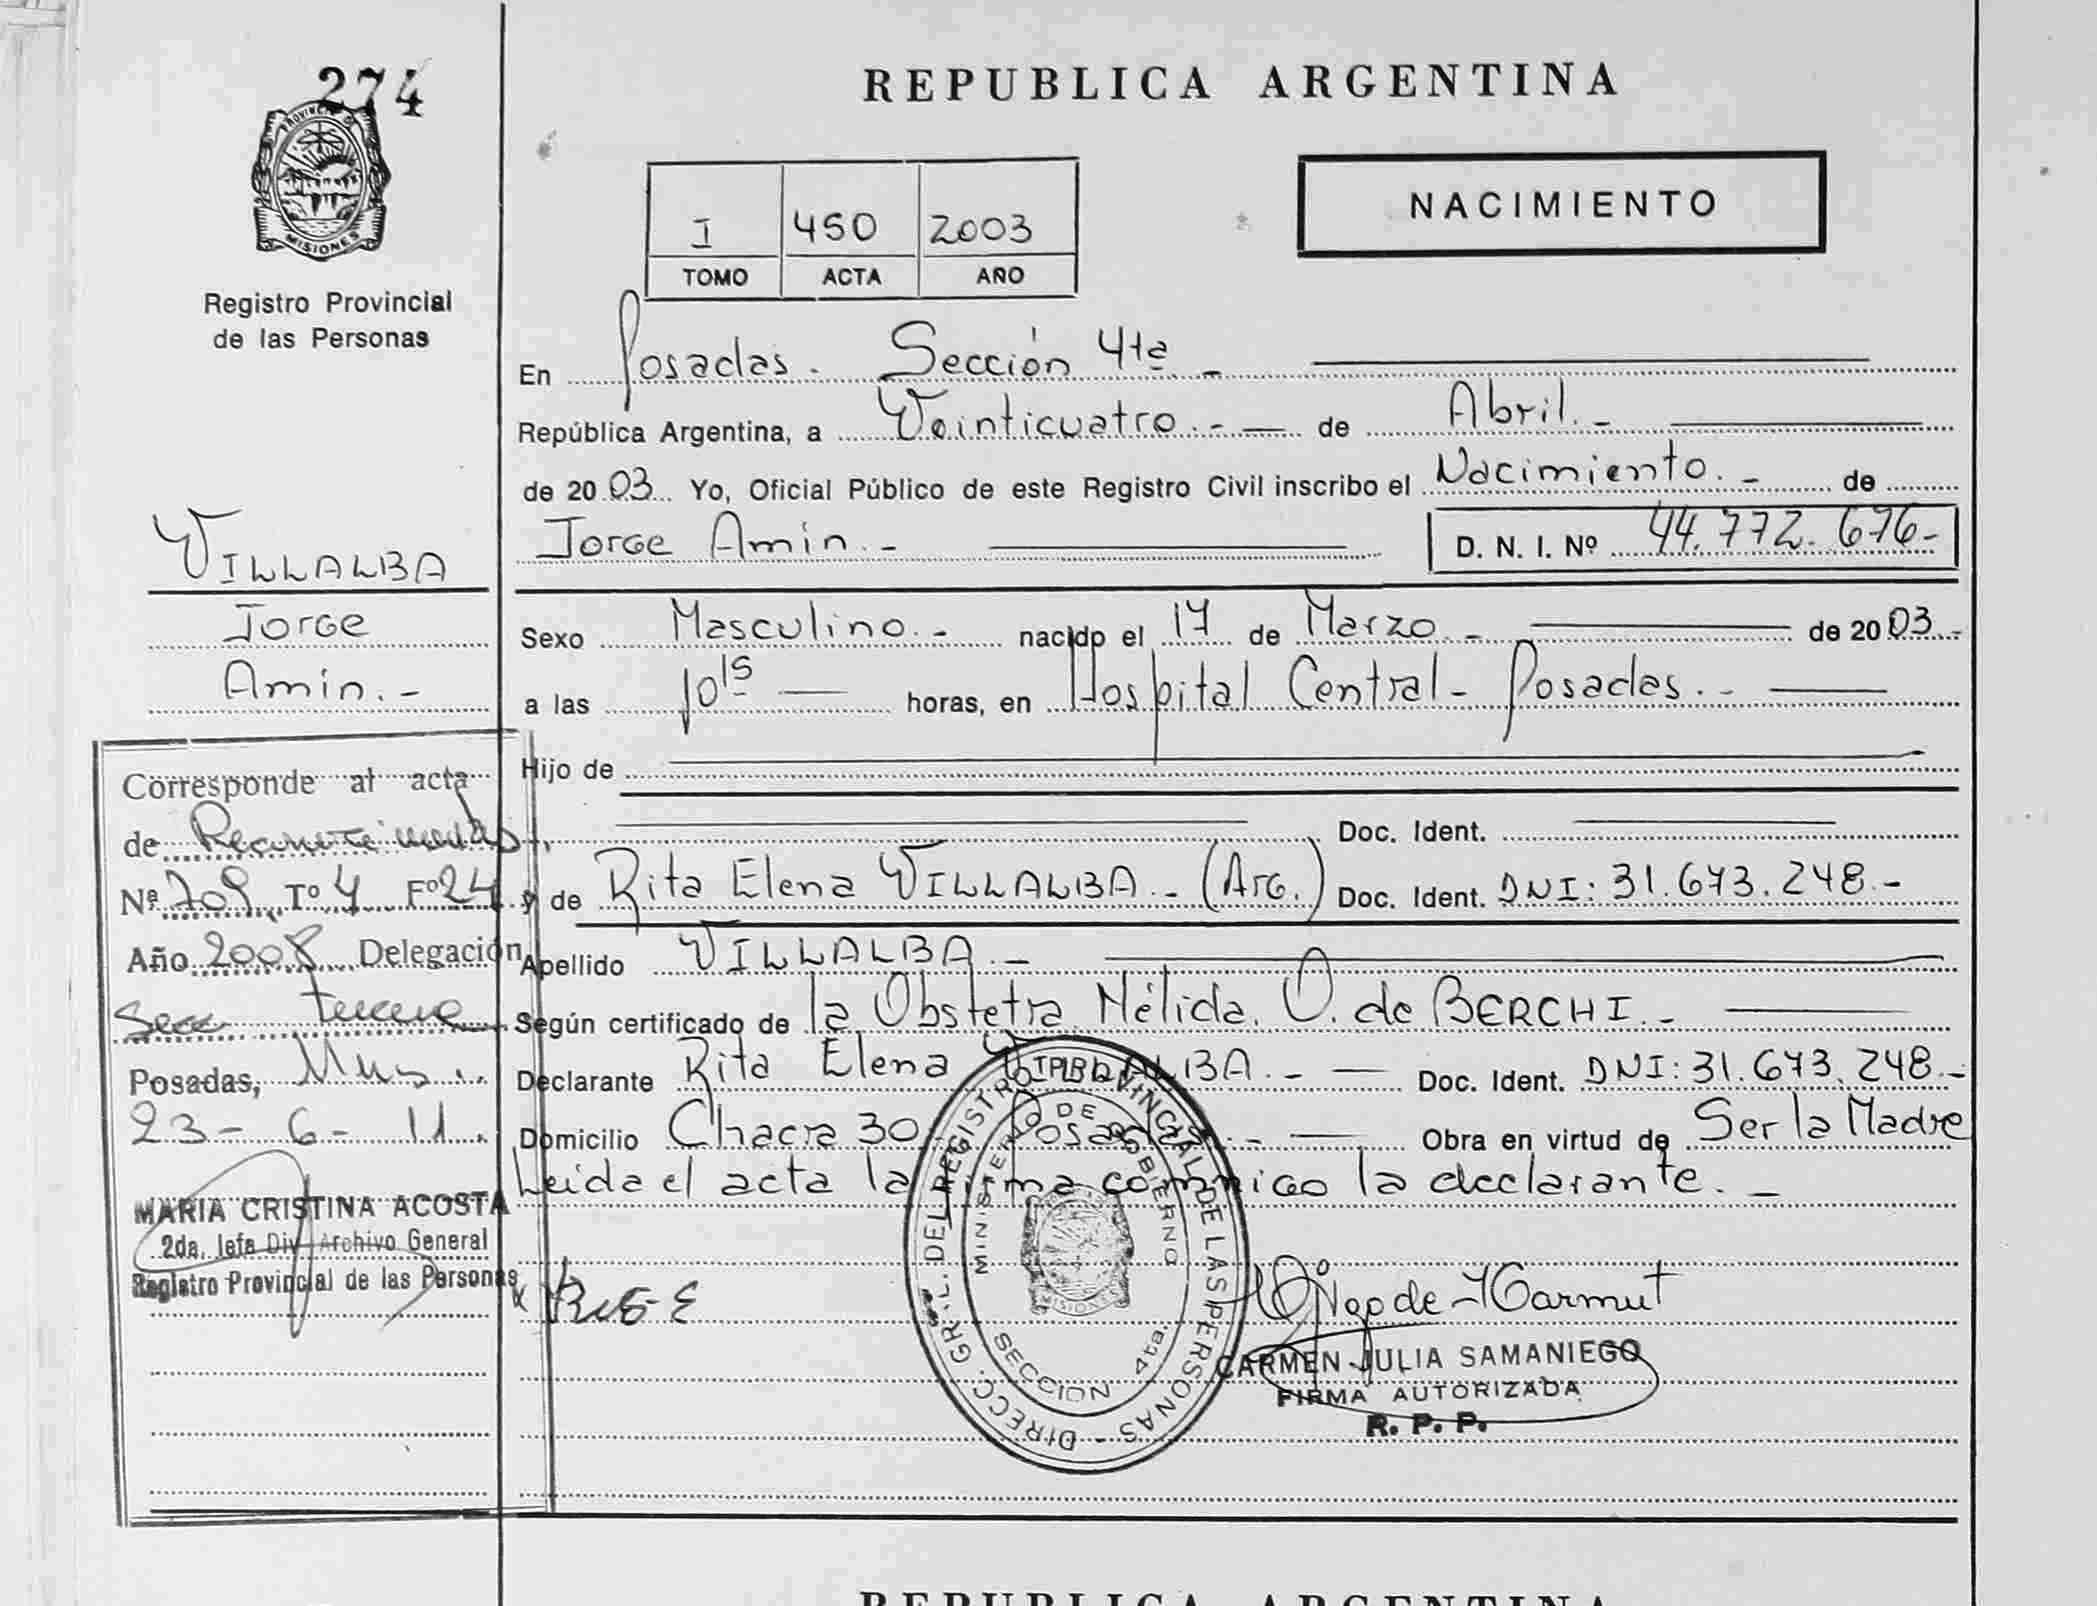 274
PROVINCIA DE
MISIONES
Registro Provincial
de las Personas
VILLALBA
Jorge
Amin.-
Corresponde al acta
de Reconocimientos
Nº 709 Tº 4 Fº 24
Año 2008 Delegación
Secc tercera
Posadas, Mns..
23- 6- 11.
MARIA CRISTINA ACOSTA
2da. Jefa Div. Archivo General
Registro Provincial de las Personas
REPUBLICA ARGENTINA
I 450 2003
TOMO ACTA AÑO
NACIMIENTO
En Posadas. Sección 4ta -
República Argentina, a Veinticuatro.- de Abril.-
de 2003 Yo, Oficial Público de este Registro Civil inscribo el Nacimiento.- de
Jorge Amin.- D. N. I. Nº 44.772.676-
Sexo Masculino.- nacido el 17 de Marzo.- de 2003.-
a las 10 15 horas, en Hospital Central- Posadas.-
Hijo de
Doc. Ident.
y de Rita Elena VILLALBA.- (Arg.) Doc. Ident. DNI: 31.673.248.-
Apellido VILLALBA.-
Según certificado de la Obstetra Nélida. O. de BERCHI.-
Declarante Rita Elena VILLALBA.- Doc. Ident. DNI: 31.673.248.-
Domicilio Chacra 30 Posadas.- Obra en virtud de Ser la Madre
Leida el acta la firma conmigo la declarante.-
DIRECC. GRAL. DEL REGISTRO PROVINCIAL DE LAS PERSONAS -
MINISTERIO DE GOBIERNO
MISIONES
SECCION 4ta.
CARMEN JULIA SAMANIEGO
FIRMA AUTORIZADA
R. P. P.
REPUBLICA ARGENTINA